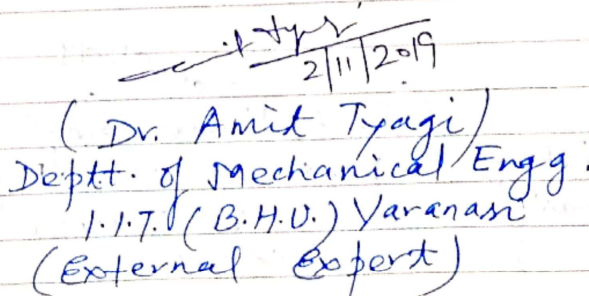 2/11/2019
(Dr. Amit Tyagi)
Deptt. of Mechanical Engg.
I.I.T. (B.H.U.) Varanasi
(External Expert)